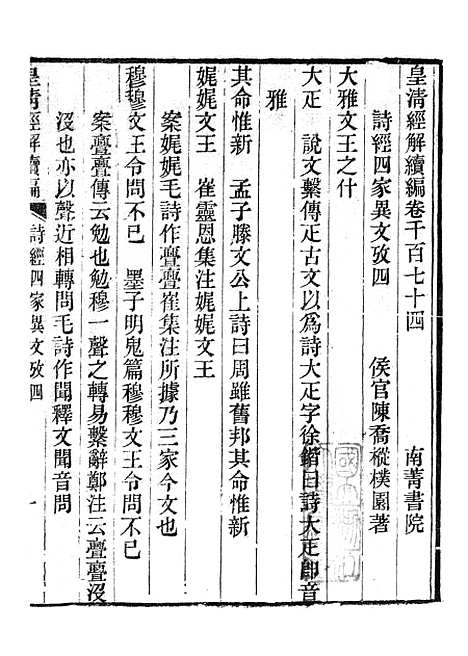 皇清經解續編卷千百七十四　南菁書院
詩經四家異文攷四　侯官陳喬樅樸園著
大雅文王之什
大疋　說文繫傳疋古文以爲詩大疋字徐鍇曰詩大疋卽音
雅
其命惟新　孟子滕文公上詩曰周雖舊邦其命惟新
娓娓文王　崔靈恩集注娓娓文王
案娓娓毛詩作亹亹崔集注所據乃三家今文也
穆穆文王令問不已　墨子明鬼篇穆穆文王令問不已
案亹亹傳云勉也勉穆一聲之轉易繫辭鄭注云亹亹沒
沒也亦以聲近相轉問毛詩作聞釋文聞音問
皇清經解續編　詩經四家異文攷四　一